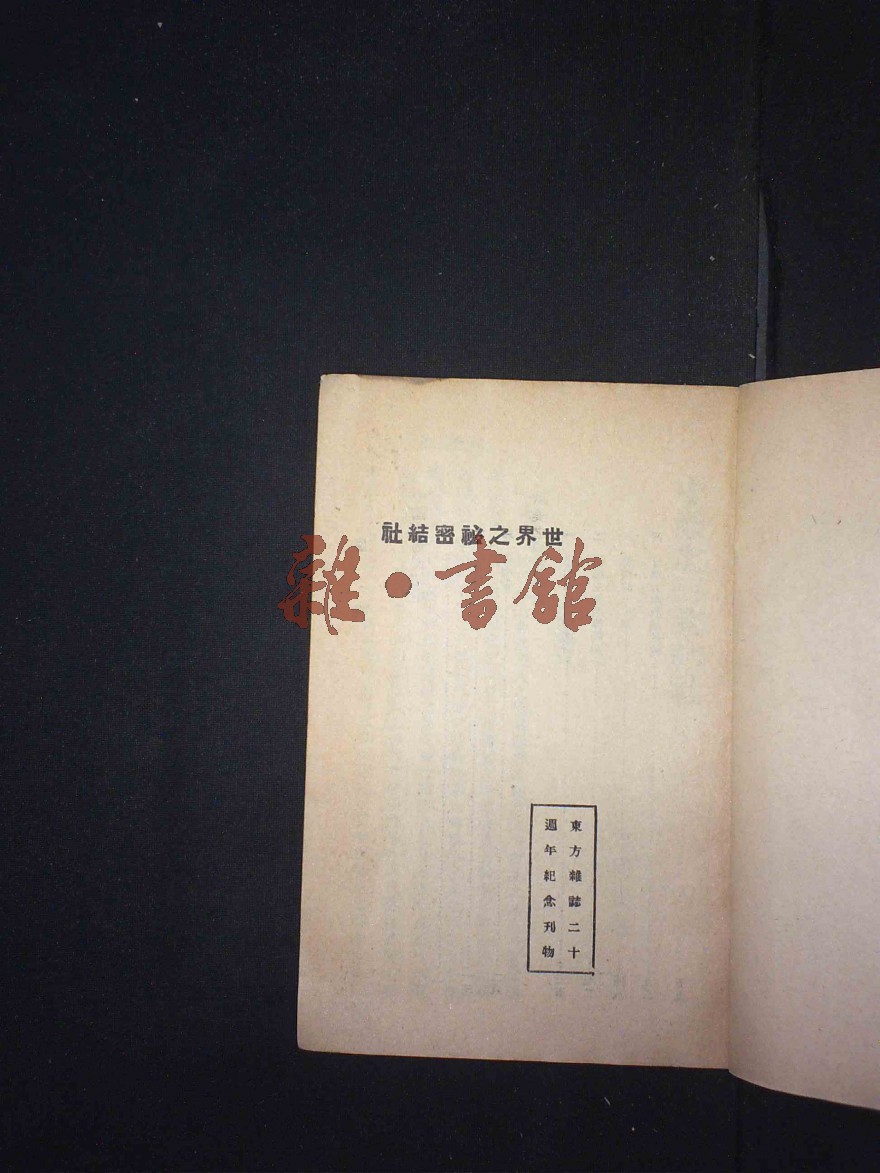 世界之祕密結社
雜·書館
東方雜誌二十
週年紀念刊物